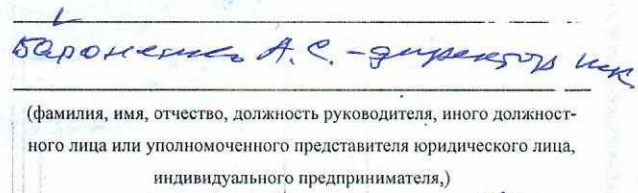 А. С. - директор
(фамилия, имя, отчество, должность руководителя, иного должност-
ного лица или уполномоченного представителя юридического лица,
индивидуального предпринимателя,)